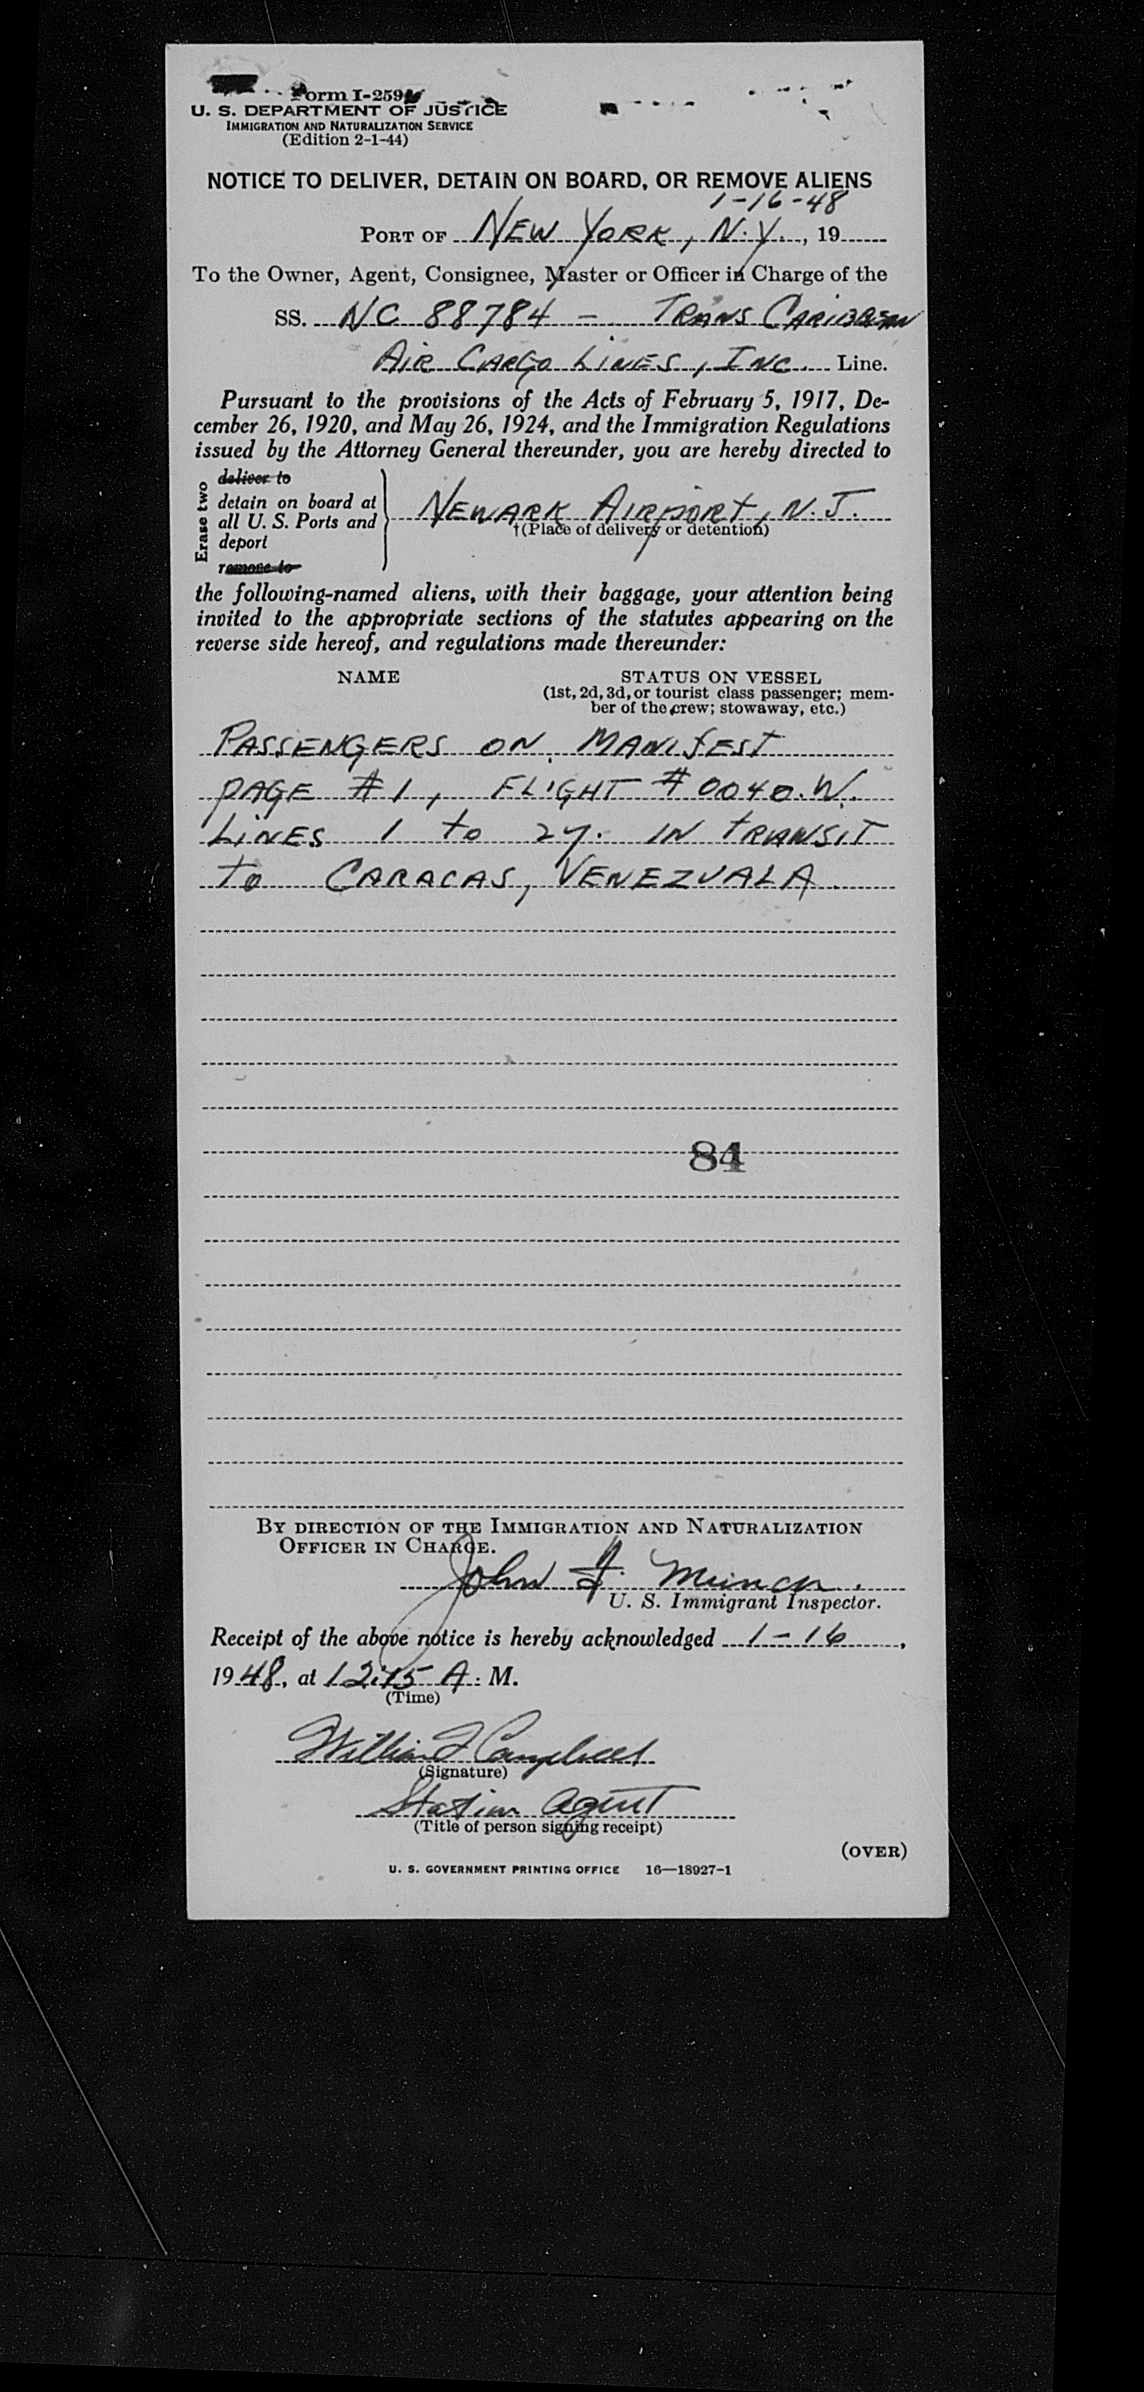 Form I-259
U. S. DEPARTMENT OF JUSTICE
IMMIGRATION AND NATURALIZATION SERVICE
(Edition 2-1-44)
NOTICE TO DELIVER, DETAIN ON BOARD, OR REMOVE ALIENS
1-16-48
PORT OF NEW YORK, N.Y., 19
To the Owner, Agent, Consignee, Master or Officer in Charge of the
SS. NC 88784 - TRANS CARIBBEAN
AIR CARGO LINES, INC. Line.
Pursuant to the provisions of the Acts of February 5, 1917, De-
cember 26, 1920, and May 26, 1924, and the Immigration Regulations
issued by the Attorney General thereunder, you are hereby directed to
Erase two
deliver to
detain on board at
all U. S. Ports and
deport
remove to
NEWARK AIRPORT, N.J.
†(Place of delivery or detention)
the following-named aliens, with their baggage, your attention being
invited to the appropriate sections of the statutes appearing on the
reverse side hereof, and regulations made thereunder:
NAME STATUS ON VESSEL
(1st, 2d, 3d, or tourist class passenger; mem-
ber of the crew; stowaway, etc.)
PASSENGERS ON MANIFEST
PAGE #1, FLIGHT #0040.W.
LINES 1 to 27. IN TRANSIT
To CARACAS, VENEZUALA.
84
BY DIRECTION OF THE IMMIGRATION AND NATURALIZATION
OFFICER IN CHARGE.
John F.
U. S. Immigrant Inspector.
Receipt of the above notice is hereby acknowledged 1-16,
1948, at 12:15 A. M.
(Time)
William J Campbell
(Signature)
Station Agent
(Title of person signing receipt)
(OVER)
U. S. GOVERNMENT PRINTING OFFICE 16—18927-1